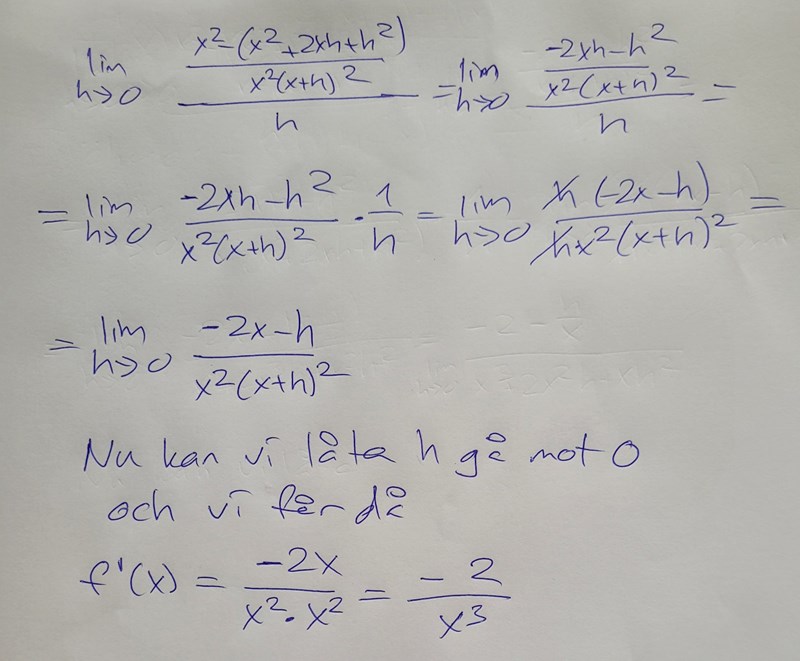 lim h→0 ((x²-(x²+2xh+h²))/(x²(x+h)²))/h = lim h→0 ((-2xh-h²)/(x²(x+h)²))/h =
= lim h→0 (-2xh-h²)/(x²(x+h)²) · 1/h = lim h→0 (h(-2x-h))/(hx²(x+h)²) =
= lim h→0 (-2x-h)/(x²(x+h)²)
Nu kan vi låta h gå mot 0
och vi får då
f'(x) = (-2x)/(x²·x²) = -2/x³